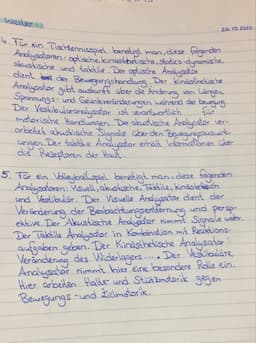 weiter
20.10.2020
4. Für ein Tischtennisspiel benötigt man, diese folgenden
Analysatoren: optische, kinästhetische, statico-dynamische,
akustische und taktile. Der optische Analysator
dient der Bewegungshandlung. Der kinästhetische
Analysator gibt auskunft über die Änderung von Längen,
Spannungs- und Gelenkveränderungen während der bewegung.
Der Vestibuläranalysator ist verantwortlich für
motorische Handlungen. Der akustische Analysator ver-
arbeitet akustische Signale über den Bewegungsauswirk-
ungen. Der taktile Analysator erhält Informationen über
die Rezeptoren der Haut.
5. Für ein Volleyballspiel benötigt man, diese folgenden
Analysatoren: Visuell, akustische, Taktile, kinästhetisch
und Vestibulär. Der Visuelle Analysator dient der
Veränderung der Beobachtungsentfernung und persp-
ektive. Der Akustische Analysator nimmt Signale wahr.
Der Taktile Analysator in Kombination mit Reaktions-
aufgaben geben. Der Kinästhetische Analysator:
Veränderung des Widerlagers.... Der Vestibuläre
Analysator nimmt hier eine besondere Rolle ein.
Hier arbeiten Halte- und Stützmotorik gegen
Bewegungs- und Zielmotorik.